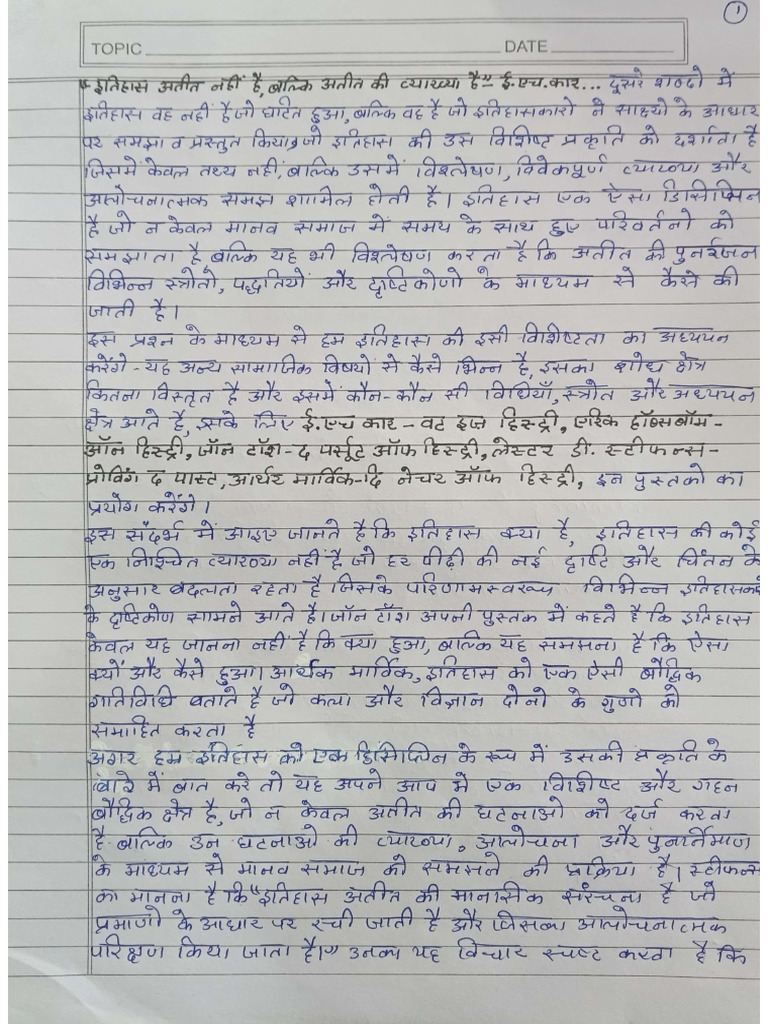 1
TOPIC DATE
"इतिहास अतीत नहीं है, बल्कि अतीत की व्याख्या है" ई.एच.कार... दुसरे शब्दो में
इतिहास वह नहीं है जो घटित हुआ, बल्कि वह है जो इतिहासकारो ने साक्ष्यो के आधार
पर समझा व प्रस्तुत किया, जो इतिहास की उस विशिष्ट प्रकृति को दर्शाता है
जिसमें केवल तथ्य नहीं, बल्कि उसमें विश्लेषण, विवेकपूर्ण व्याख्या और
आलोचनात्मक समझ शामिल होती है। इतिहास एक ऐसा डिसिप्लिन
है जो न केवल मानव समाज में समय के साथ हुए परिवर्तनो को
समझाता है बल्कि यह भी विश्लेषण करता है कि अतीत की पुनर्रजन
विभिन्न स्त्रोतो, पद्धतियों और दृष्टिकोणो के माध्यम से कैसे की
जाती है।
इस प्रश्न के माध्यम से हम इतिहास की इसी विशिष्टता का अध्ययन
करेंगे - यह अन्य सामाजिक विषयों से कैसे भिन्न है, इसका शोध क्षेत्र
कितना विस्तृत है और इसमें कौन-कौन सी विधियाँ, स्त्रोत और अध्ययन
क्षेत्र आते है, इसके लिए ई.एच कार - वट इज हिस्ट्री, एरिक हॉब्सबॉम-
ऑन हिस्ट्री, जॉन टॉश - द पर्सूट ऑफ हिस्ट्री, लेस्टर डी. स्टीफन्स-
प्रोविंग द पास्ट, आर्थर मार्विक-दि नेचर ऑफ हिस्ट्री, इन पुस्तको का
प्रयोग करेंगे।
इस संदर्भ में आइए जानते है कि इतिहास क्या है, इतिहास की कोई
एक निश्चित व्याख्या नहीं है जो हर पीढ़ी की नई दृष्टि और चिंतन के
अनुसार बदलता रहता है जिसके परिणामस्वरूप विभिन्न इतिहासकारो
के दृष्टिकोण सामने आते है। जॉन टॉश अपनी पुस्तक में कहते है कि इतिहास
केवल यह जानना नहीं है कि क्या हुआ, बल्कि यह समझना है कि ऐसा
क्यों और कैसे हुआ। आर्थक मार्विक, इतिहास को एक ऐसी बौद्धिक
गतिविधि बताते है जो कला और विज्ञान दोनो के गुणो को
समाहित करता है
अगर हम इतिहास को एक डिसिप्लिन के रूप में उसकी प्रकृति के
बारे में बात करे तो यह अपने आप में एक विशिष्ट और गहन
बौद्धिक क्षेत्र है, जो न केवल अतीत की घटनाओ को दर्ज करता
है बल्कि उन घटनाओ की व्याख्या, आलोचना और पुनर्निमाण
के माध्यम से मानव समाज को समझने की प्रक्रिया है। स्टीफन्स
का मानना है कि "इतिहास अतीत की मानसिक संरचना है जो
प्रमाणो के आधार पर रची जाती है और जिसका आलोचनात्मक
परिक्षण किया जाता है।" उनका यह विचार स्पष्ट करता है कि